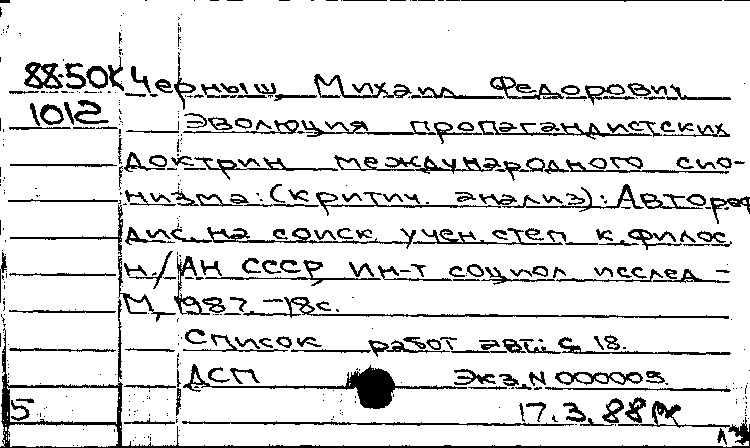 88-50К Черныш, Михаил Федорович
1012 Эволюция пропагандистских
доктрин международного сио-
низма: (критич. анализ): Автореф
дис. на соиск. учен. степ к. филос
н. / АН СССР, Ин-т социол исслед -
М, 1987. - 18с.
Список работ авт.: с 18.
ДСП Экз. N 000005
5 17.3.88